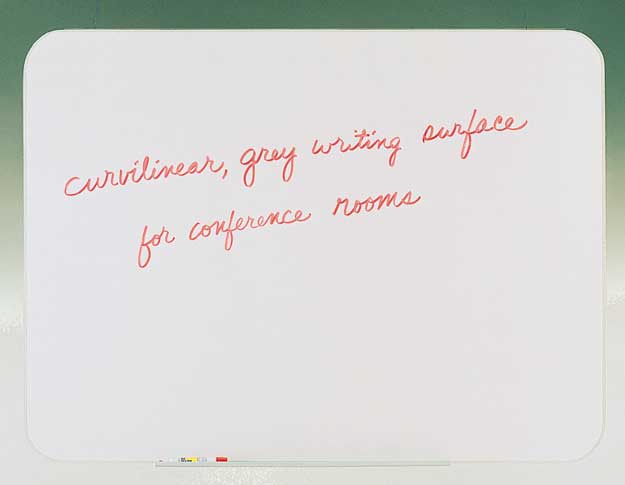 curvilinear, grey writing surface
for conference rooms